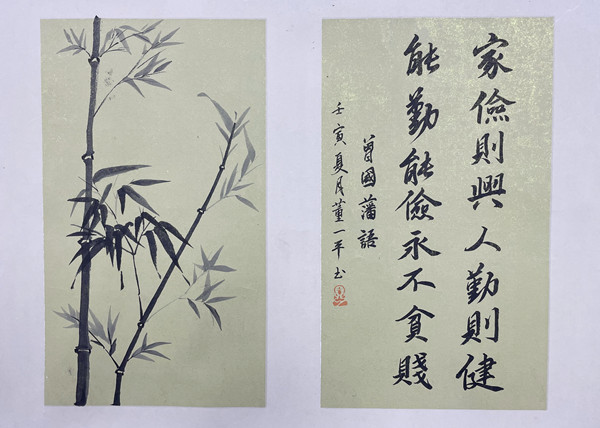 家儉則興人勤則健
能勤能儉永不貪賤
曾國藩語
壬寅夏月董一平书